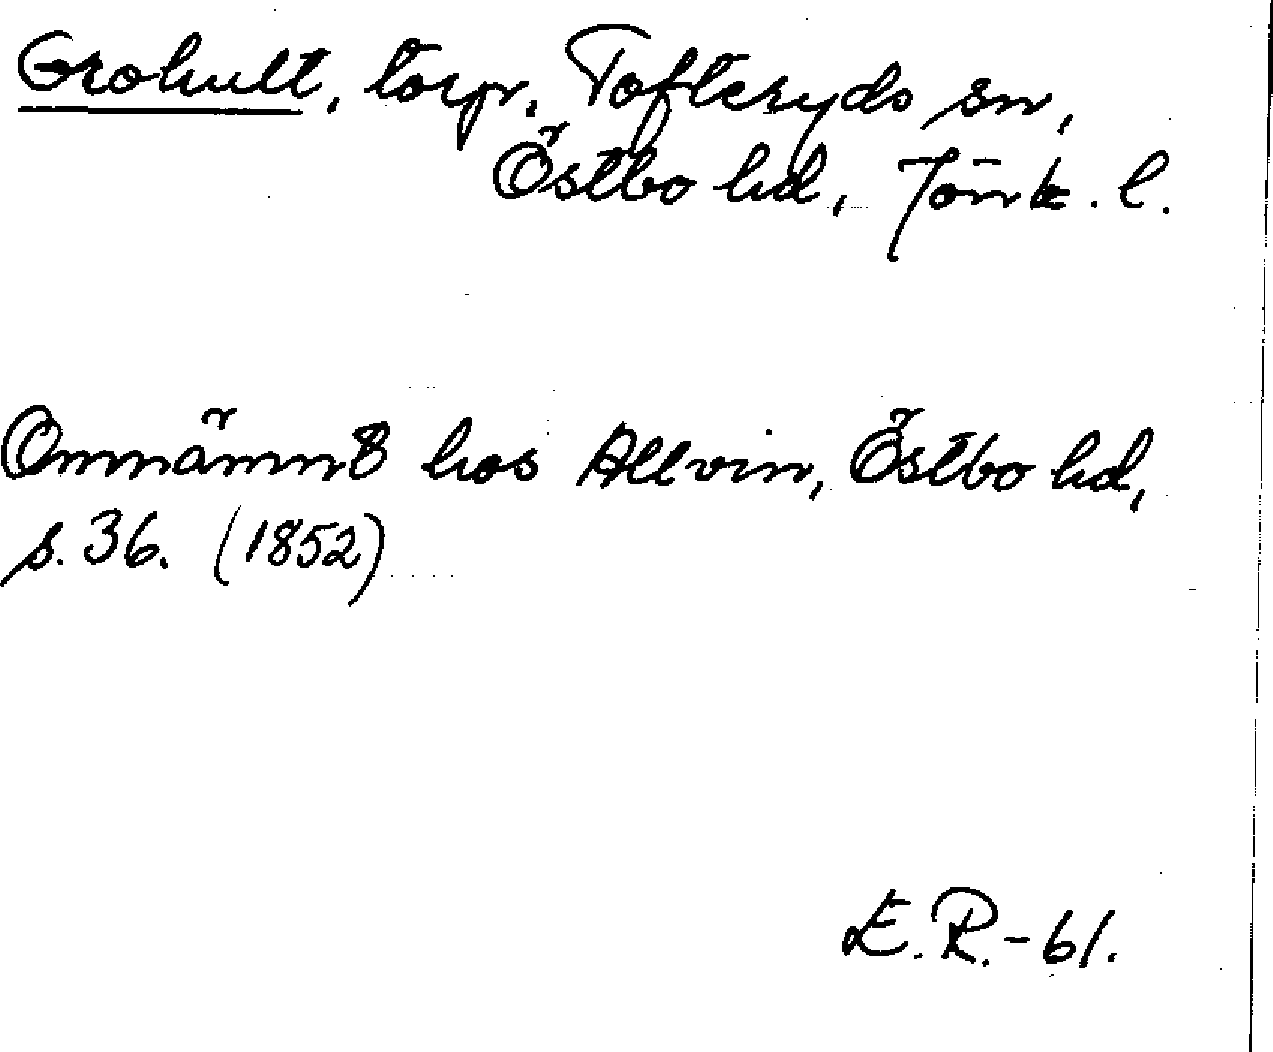 Grohult, torp, Tofteryds sn,
Östbo hd, Jönk. l.
Omnämnt hos Allvin, Östbo hd,
s. 36. (1852)
E.R.-61.